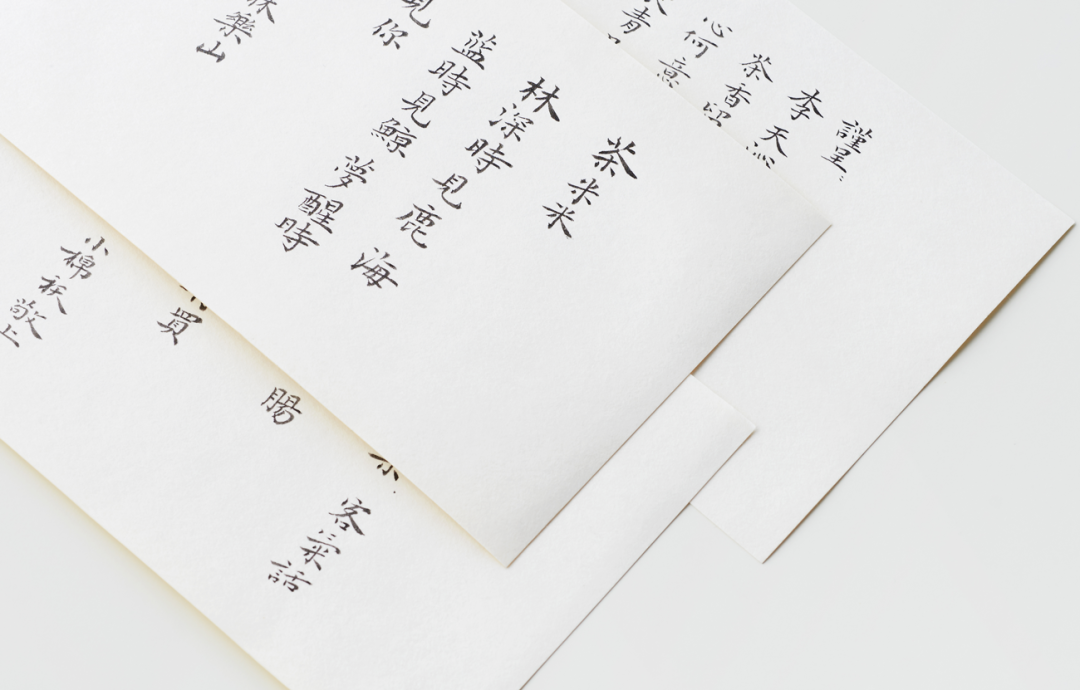 謹呈:
李天
茶香
心何意
青
茶米米
林深時見鹿 海
藍時見鯨 夢醒時
見你
林樂山
客氣話
腸
買
小棉袄敬上